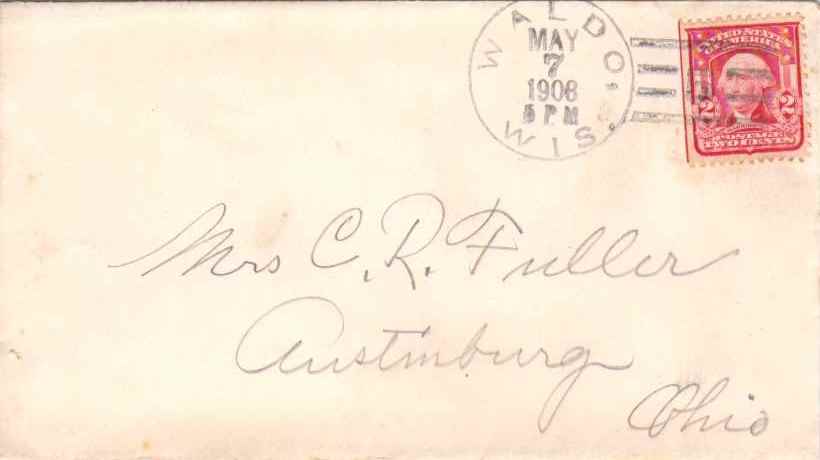 WALDO, WIS.
MAY
7
1908
5 PM
UNITED STATES
OF AMERICA
2 2
POSTAGE
TWO CENTS
Mrs C. R. Fuller
Austinburg
Ohio